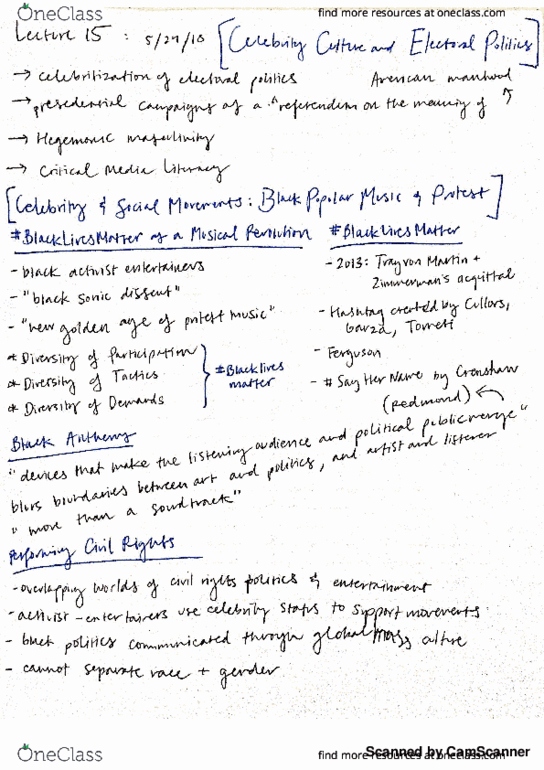 OneClass
find more resources at oneclass.com
Lecture 15 : 5/29/18 [Celebrity Culture and Electoral Politics]
→ celebritization of electoral politics
American manhood
→ presedential campaigns as a "referendum on the meaning of
→ Hegemonic masculinity
→ Critical Media Literacy
[Celebrity & Social Movements: Black Popular Music & Protest]
#BlackLivesMatter as a Musical Revolution
- black activist entertainers
- "black sonic dissent"
- "new golden age of protest music"
* Diversity of Participation
* Diversity of Tactics
* Diversity of Demands
#Blacklives
matter
#BlackLivesMatter
- 2013: Trayvon Martin +
Zimmerman's acquittal
- Hashtag created by Cullors,
Garza, Tometi
- Ferguson
- #SayHerName by Crenshaw
(Redmond)
Black Anthems
"devices that make the listening audience and political public merge"
blurs boundaries between art and politics, and artist and listener
"more than a soundtrack"
Performing Civil Rights
- overlapping worlds of civil rights politics & entertainment
- activist-entertainers use celebrity status to support movements
- black politics communicated through global mass culture
- cannot separate race + gender
OneClass
find more resources at oneclass.com
Scanned by CamScanner